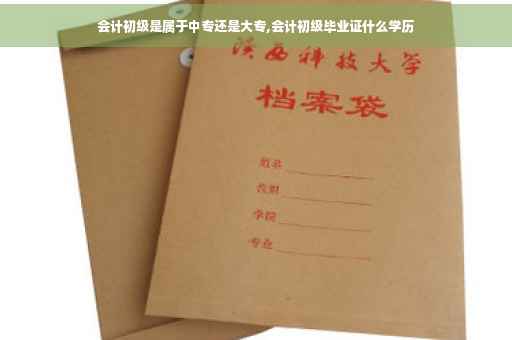 会计初级是属于中专还是大专,会计初级毕业证什么学历
陕西科技大学
档案袋
姓名
性别
学院
专业